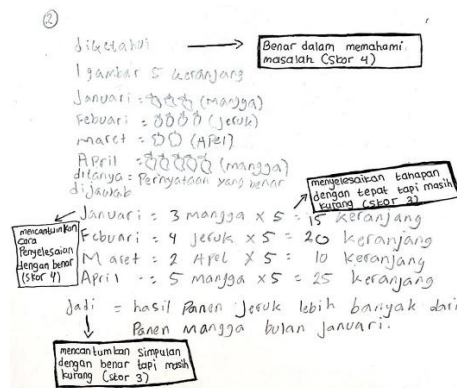 2
diketahui
Benar dalam memahami
masalah (Skor 4)
1 gambar 5 keranjang
Januari = (mangga)
Febuari = (jeruk)
maret = (APel)
APril = (mangga)
ditanya = Pernyataan yang benar
dijawab
menyelesaikan tahapan
dengan tepat tapi masih
kurang (skor 3)
mencantumkan
cara
Penyelesaian
dengan benar
(skor 4)
Januari = 3 mangga x 5 = 15 keranjang
Febuari = 4 jeruk x 5 = 20 keranjang
Maret = 2 APel x 5 = 10 keranjang
April = 5 mangga x 5 = 25 keranjang
Jadi = hasil Panen jeruk lebih banyak dari
Panen mangga bulan januari.
mencantumkan simpulan
dengan benar tapi masih
kurang (skor 3)